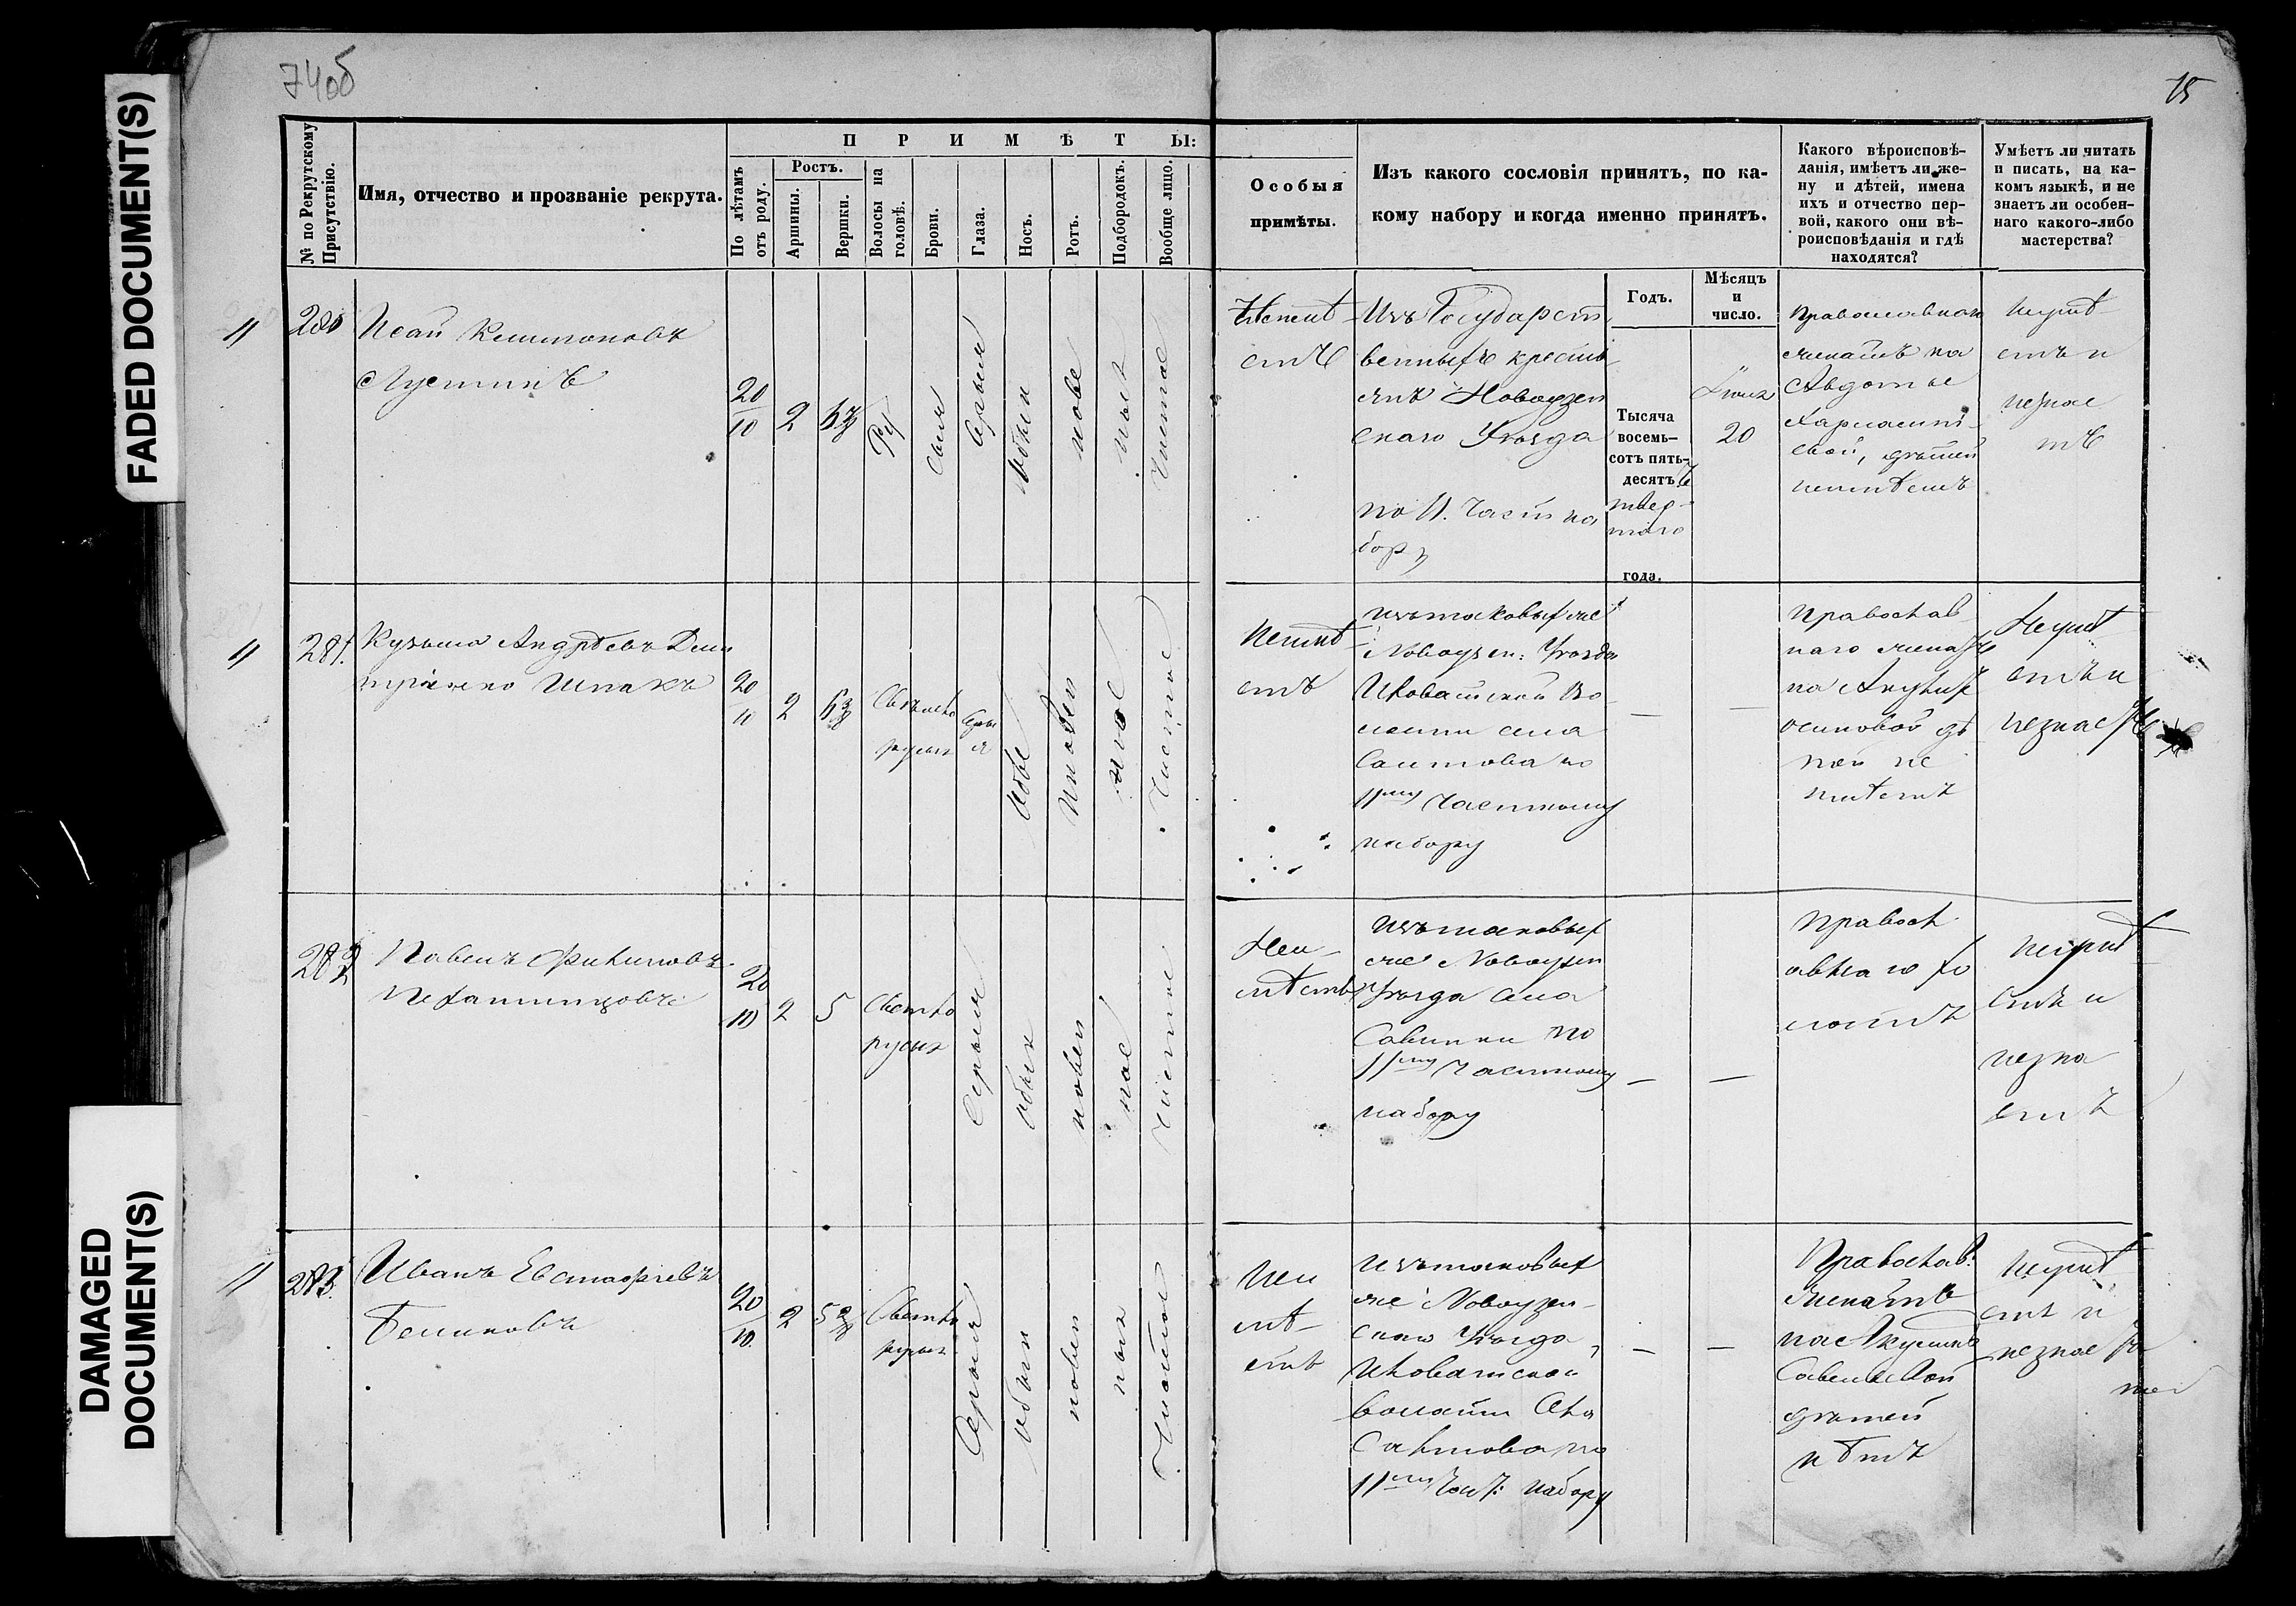 FADED DOCUMENT(S)
DAMAGED
DOCUMENT(S)
74об
75
№ по Рекрутскому Присутствію.
Имя, отчество и прозваніе рекрута.
ПРИМѢТЫ:
По лѣтамъ отъ роду.
Ростъ.
Аршины.
Вершки.
Волосы на головѣ.
Брови.
Глаза.
Носъ.
Ротъ.
Подбородокъ.
Вообще лицо.
Особыя
примѣты.
Изъ какого сословія принятъ, по ка-
кому набору и когда именно принятъ.
Годъ.
Мѣсяцъ
и
число.
Какого вѣроисповѣ-
данія, имѣетъ ли же-
ну и дѣтей, имена
ихъ и отчество пер-
вой, какого они вѣ-
роисповѣданія и гдѣ
находятся?
Умѣетъ ли читать
и писать, на ка-
комъ языкѣ, и не
знаетъ ли особен-
наго какого-либо
мастерства?
280
Исай
20/10
2
Ру
сыя
Серыя
Обыкн
нове
ные
Чистое
Неимѣ
етъ
Изъ Государст
венныхъ кресть
янъ Новоузен
скаго Уѣзда
по 11. Част на
бору
Тысяча
восемь-
сотъ пять-
десятъ
года.
Іюля
20
женатъ на
Авдотье
дѣтей
неимѣетъ
Неумѣ
етъ и
незнае
тъ
281.
Кузьма Андрѣевъ Дми
тріенко Шпакъ
20/10
2
Светло
русыя
Серы
я
Обык
новен
ное
Чистое
Неимѣ
етъ
Изътаковыхже
Новоузен: Уѣзда
Во
лости села
по
11му Частному
набору
—
—
Православ
наго женатъ
на
дѣ
тей не
имѣетъ
Неумѣ
етъ и
незнаетъ
282
Павелъ Филиповъ
20/10
2
5
Светло
русыя
Серыя
Обык
новен
ное
Чистое
Неи
мѣетъ
Изътаковых
же Новоузен
Уѣзда села
Савинки по
11му Частному
набору
—
—
Правосл
авнаго хо
лостъ
Неумѣ
етъ и
незна
етъ
283.
Иванъ Евстафіевъ
20/10
2
Светло
русыя
Серыя
Обыкн
новен
ныя
Чистое
Неи
мѣ
етъ
Изътаковых
же Новоузен
скаго Уѣзда
волости Села
по
11му Част: набору
—
—
Православ:
женатъ
на
дѣтей
нѣтъ
Неумѣ
етъ и
незнае